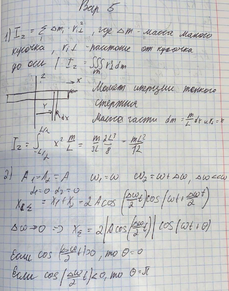 Вар. 5
1) I_z = Σ Δm_i r_i⊥², где Δm - масса малого
кусочка, r_i⊥ - расстояние от кусочка
до оси / I_z = ∭ r⊥ dm
z
x
Момент инерции тонкого
стержня
r dx
Масса части dm = m/L dx, r₁ = x
I_z = ∫_{-L/2}^{L/2} x² m/L = m/3L 2L³/8 = mL²/12
2) A₁ = A₂ = A ω₁ = ω ω₂ = ω + Δω, Δω << ω
α₁ = 0 α₂ = 0
x_Σ = x₁ + x₂ = 2A cos(Δωt/2) cos(ωt + Δωt/2)
Δω → 0 => x_Σ = 2|A cos(Δωt/2)| cos(ωt + θ)
Если cos(Δωt/2) > 0, то θ = 0
Если cos(Δωt/2) < 0, то θ = π